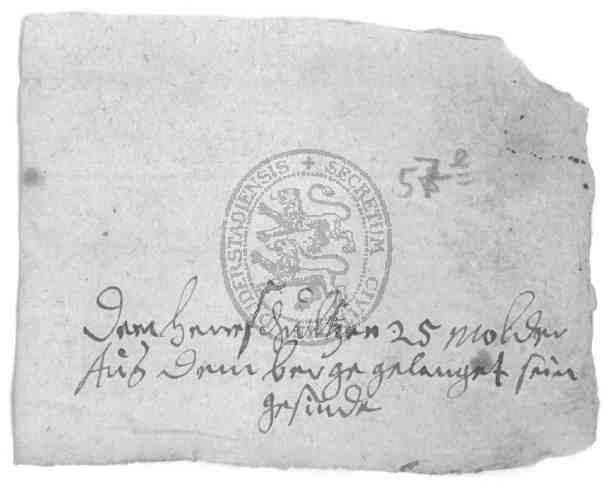 SECRETUM CIVI
DERSTADIENSIS +
Dem herr schultzen 25 molder
Aus dem berge gelanget sein
gesinde